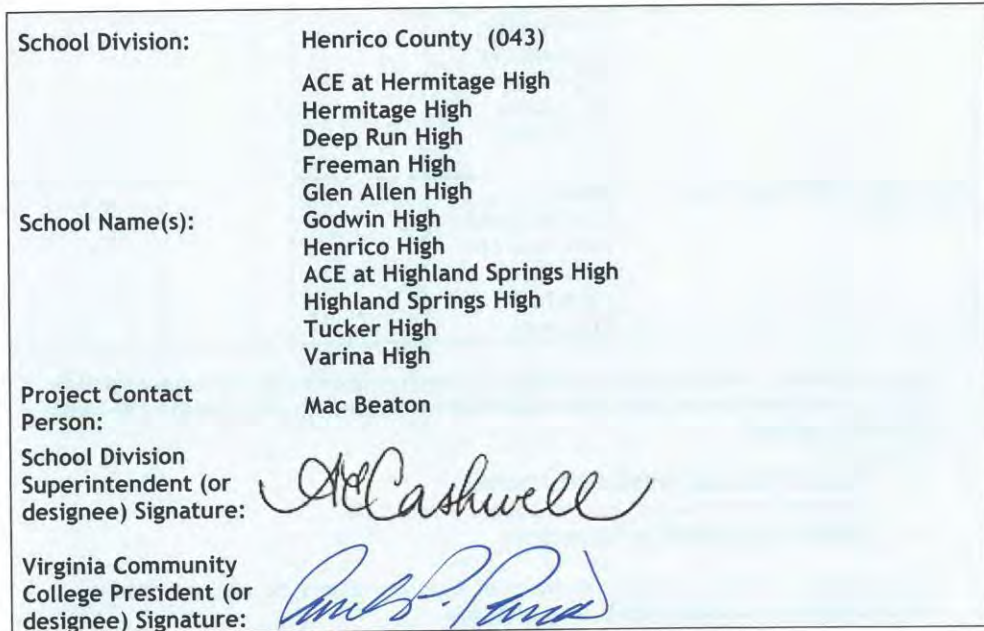 School Division: Henrico County (043)
ACE at Hermitage High
Hermitage High
Deep Run High
Freeman High
Glen Allen High
School Name(s): Godwin High
Henrico High
ACE at Highland Springs High
Highland Springs High
Tucker High
Varina High
Project Contact
Person: Mac Beaton
School Division
Superintendent (or
designee) Signature: AECashwell
Virginia Community
College President (or
designee) Signature: